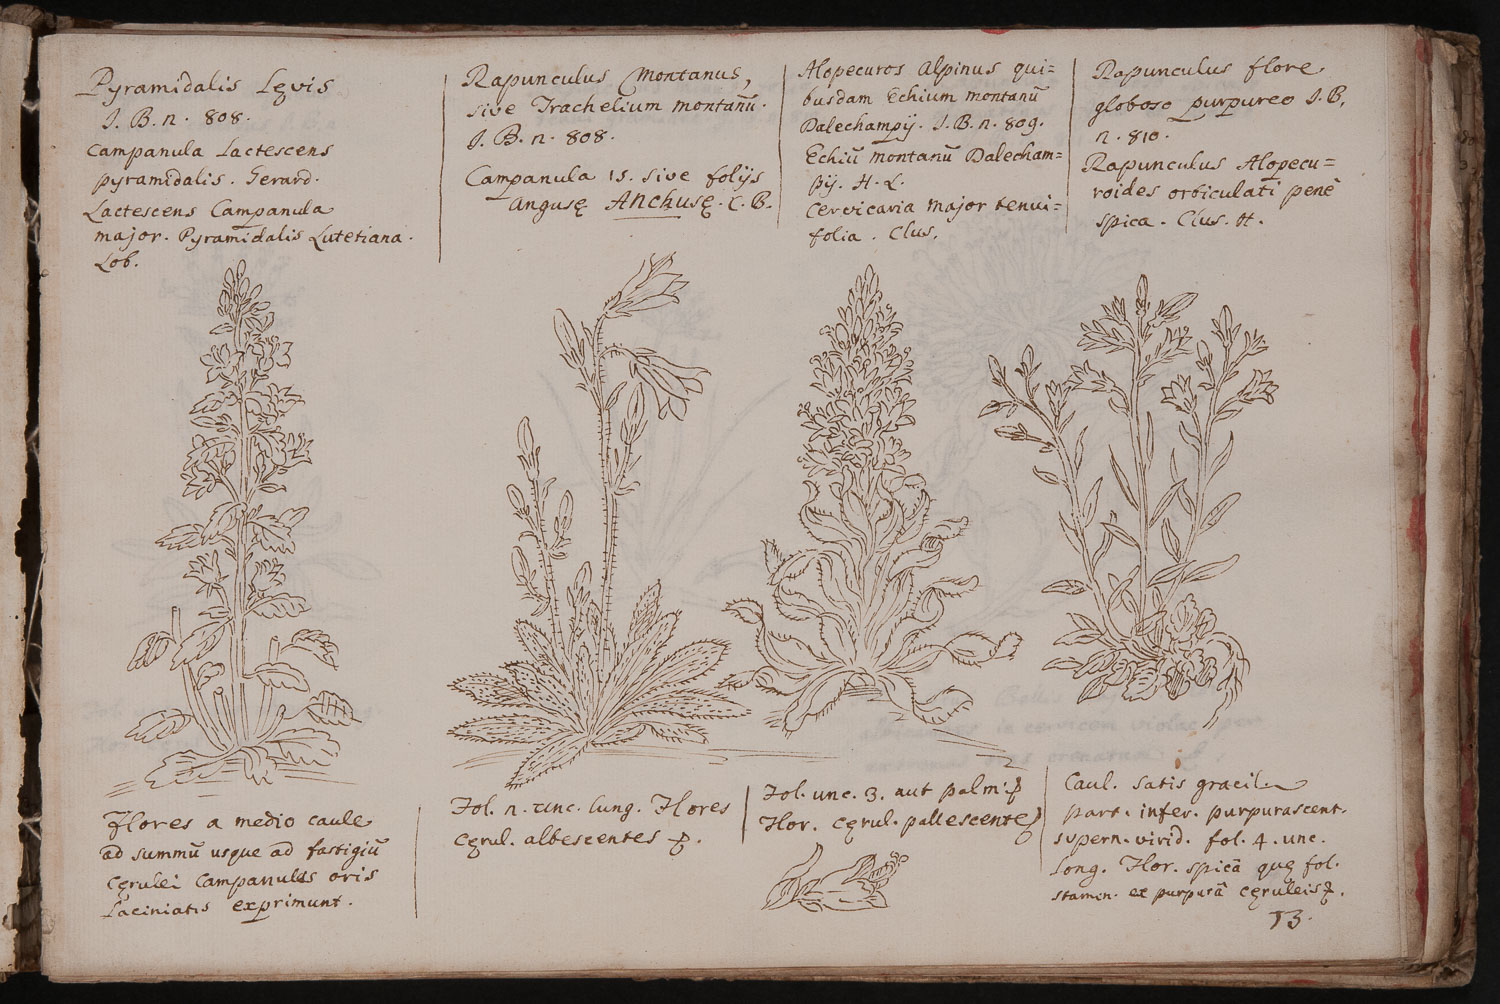 Pyramidalis Lęvis
J. B. n. 808.
Campanula Lactescens
pyramidalis. Gerard.
Lactescens Campanula
major. Pyramidalis Lutetiana.
Lob.
Rapunculus Montanus,
sive Trachelium montanū.
J. B. n. 808.
Campanula 15. sive folijs
angusę Anchusę. C. B.
Alopecuros Alpinus qui=
busdam Echium montanū
Dalechampij. J. B. n. 809.
Echiū montanū Dalecham=
pij. H. L.
Cervicaria major tenui=
folia. Clus.
Rapunculus flore
globoso purpureo J. B.
n. 810.
Rapunculus Alopecu=
roides orbiculati penè
spica. Clus. H.
Flores a medio caule
ad summū usque ad fastigiū
Cęrulei Campanulas oris
Laciniatis exprimunt.
Fol. n. unc. lung. Flores
Cęrul. albescentes
Fol. unc. 3. aut palm.
Flor. cęrul. pallescente
Caul. satis gracil
part. infer. purpurascent.
supern. virid. fol. 4. unc.
long. Flor. spicā quę fol.
stamin. et purpurā cęruleis
13.